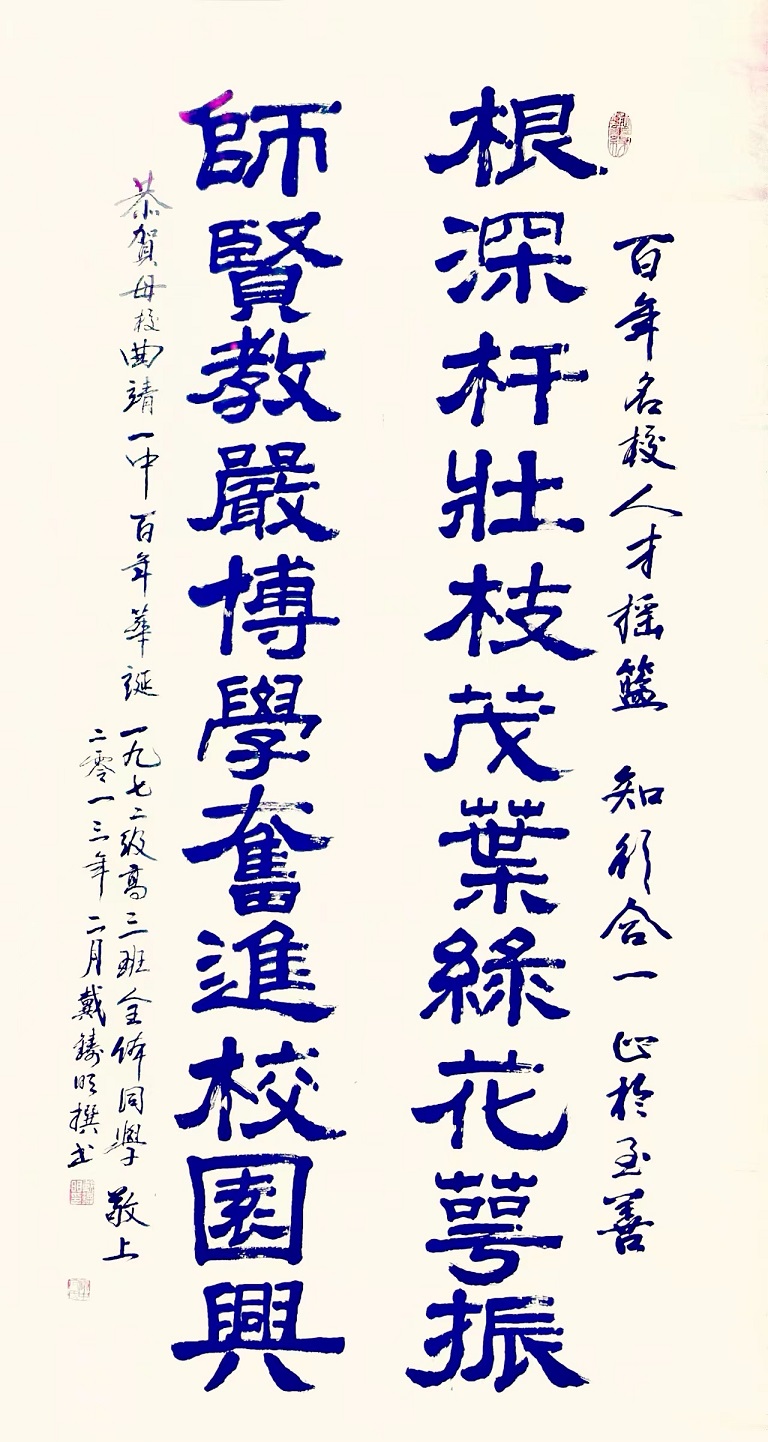 百年名校人才摇篮 知行合一 止於至善
根深杆壯枝茂葉綠花萼振
師賢教嚴博學奮進校園興
恭賀母校曲靖一中百年華誕
一九七二级高三班全体同學 敬上
二零一三年二月戴鑄明撰书